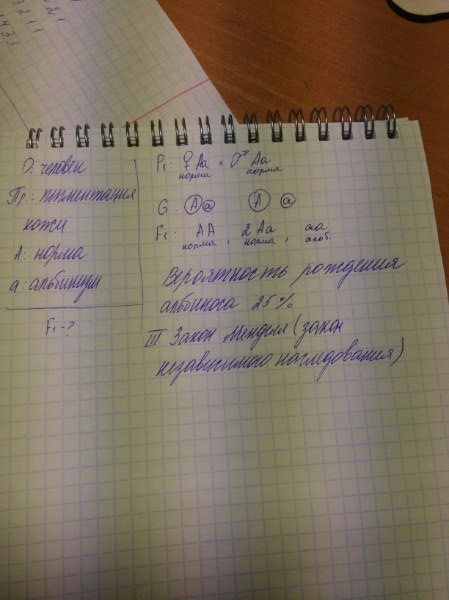 О: человек
Пр: пигментация
кожи
А: норма
а: альбинизм
F₁ - ?
P₁: ♀ Аа × ♂ Аа
норма норма
G: А а А а
F₁: АА, 2 Аа, аа
норма норма альб.
Вероятность рождения
альбиноса 25%
III Закон Менделя (закон
независимого наследования)